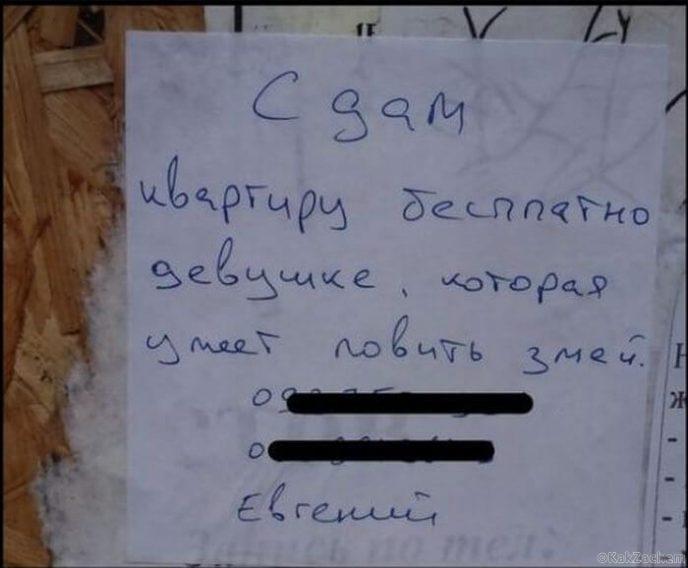 Сдам
квартиру бесплатно
девушке, которая
умеет ловить змей.
Евгений
Запись по тел:
©KakZachem